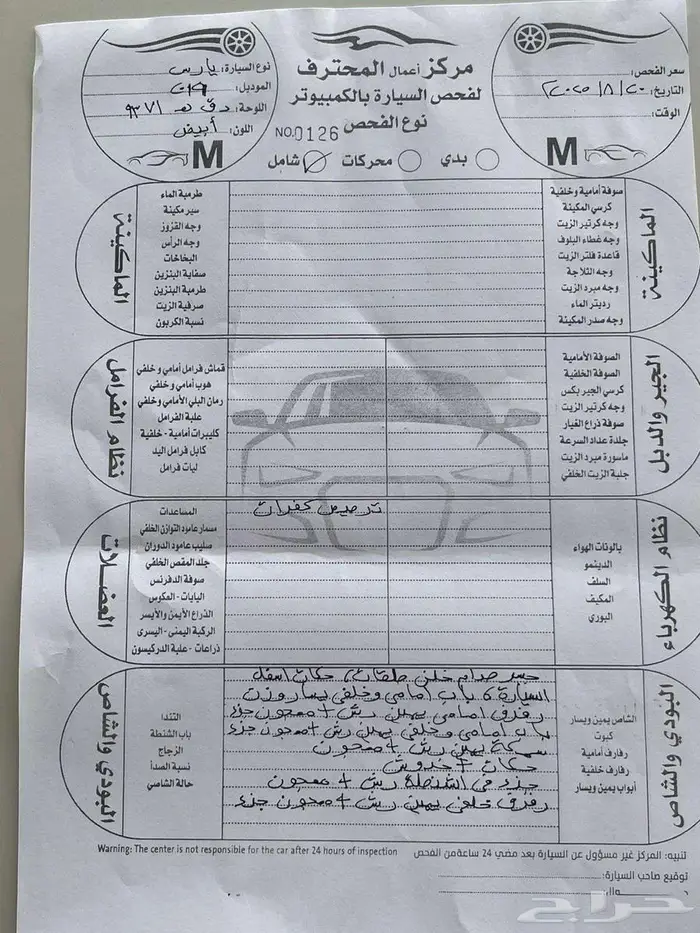 مركز أعمال المحترف
لفحص السيارة بالكمبيوتر
نوع الفحص
NO.0126
بدي
محركات
شامل
سعر الفحص:
التاريخ: ٢٠٢٥/٨/٢٠
الوقت:
M
نوع السيارة: يارس
الموديل:
اللوحة: ٩٣٧١
اللون: أبيض
M
الماكينة
صوفة أمامية وخلفية
كرسي المكينة
وجه كرتير الزيت
وجه غطاء البلوف
قاعدة فلتر الزيت
وجه الثلاجة
وجه مبرد الزيت
رديتر الماء
وجه صدر المكينة
طرمبة الماء
سير مكينة
وجه القزوز
وجه الرأس
البخاخات
صفاية البنزين
طرمبة البنزين
صرفية الزيت
نسبة الكربون
الماكينة
الجير والدبل
الصوفة الأمامية
الصوفة الخلفية
كرسي الجير بكس
وجه كرتير الزيت
صوفة ذراع الغيار
جلدة عداد السرعة
ماسورة مبرد الزيت
جلبة الزيت الخلفي
قماش فرامل أمامي وخلفي
هوب أمامي وخلفي
رمان البلي الأمامي وخلفي
علبة الفرامل
كليبرات أمامية - خلفية
كابل فرامل اليد
ليات فرامل
نظام الفرامل
نظام الكهرباء
بالونات الهواء
الدينمو
السلف
المكيف
البوري
ترصيص كفرات
المساعدات
مسمار عامود التوازن الخلفي
صليب عامود الدوران
جلد المقص الخلفي
صوفة الدفرنس
اليايات - العكوس
الذراع الأيمن والأيسر
الركبة اليمنى - اليسرى
ذراعات - علبة الدركسون
العضلات
البودي والشاص
الشاص يمين ويسار
كبوت
رفارف أمامية
رفارف خلفية
أبواب يمين ويسار
صدام خلفي حكات اسفل
السيارة باب امامي وخلفي يسار وزن
رفرف امامي يمين رش + معجون جزء
باب امامي وخلفي يمين رش + معجون جزء
سمكة يمين رش + معجون
حكات + خدوش
جزء في الشنطة رش + معجون
رفرف خلفي يمين رش + معجون جزء
التندا
باب الشنطة
الزجاج
نسبة الصدأ
حالة الشاصي
البودي والشاص
تنبيه: المركز غير مسؤول عن السيارة بعد مضي 24 ساعة من الفحص
Warning: The center is not responsible for the car after 24 hours of inspection
توقيع صاحب السيارة:
حراج